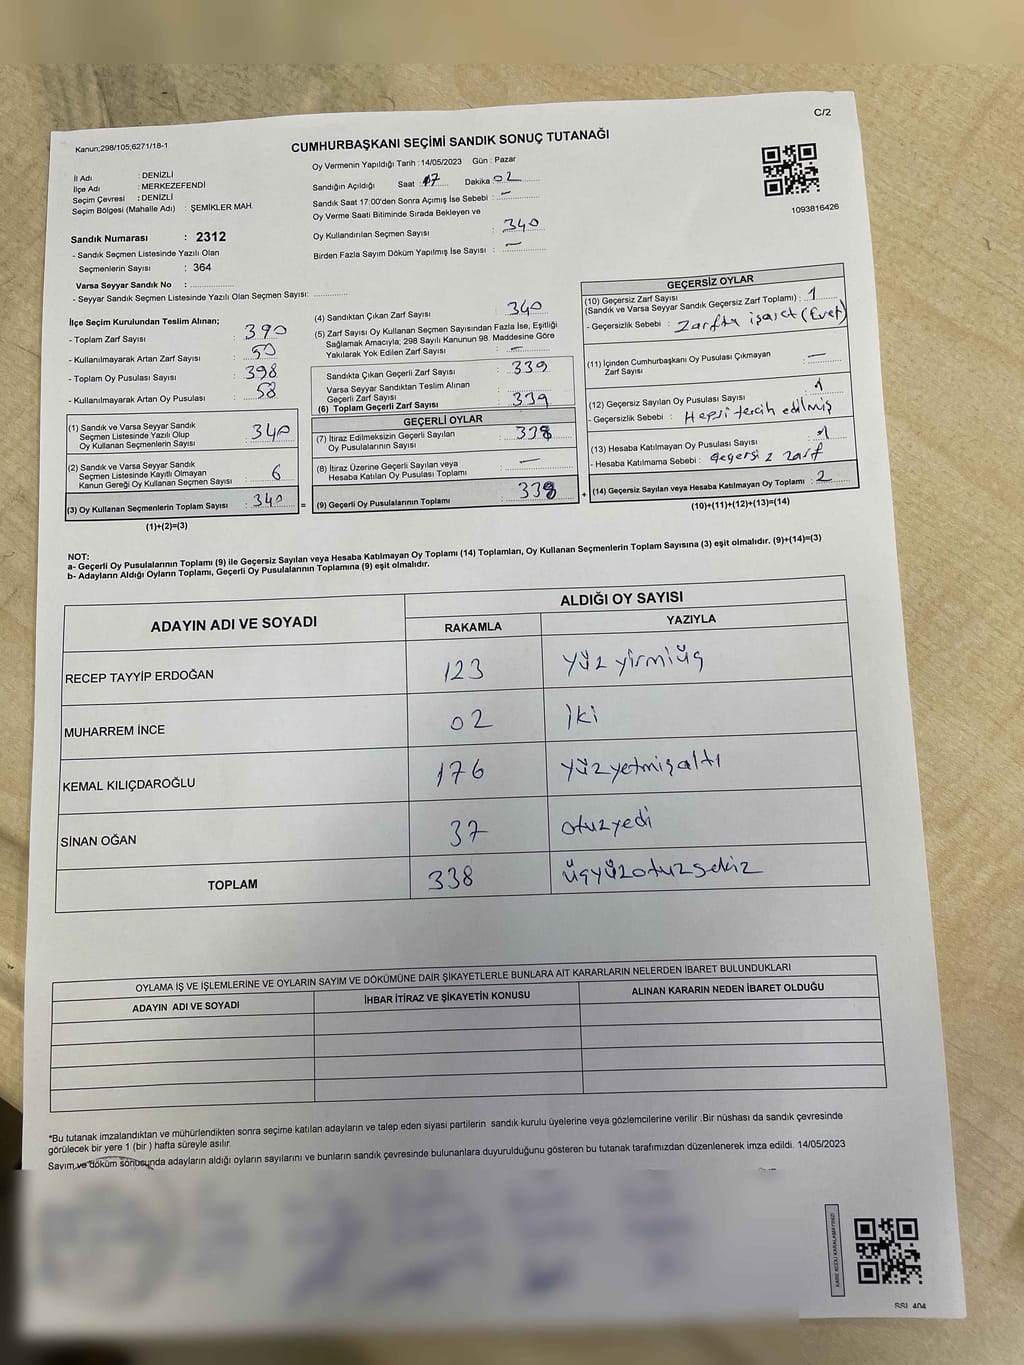 C/2
Kanun;298/105;6271/18-1
CUMHURBAŞKANI SEÇİMİ SANDIK SONUÇ TUTANAĞI
Oy Vermenin Yapıldığı Tarih : 14/05/2023 Gün : Pazar
İl Adı : DENİZLİ
İlçe Adı : MERKEZEFENDİ
Seçim Çevresi : DENİZLİ
Seçim Bölgesi (Mahalle Adı) : ŞEMİKLER MAH.
Sandık Numarası : 2312
- Sandık Seçmen Listesinde Yazılı Olan
Seçmenlerin Sayısı : 364
Varsa Seyyar Sandık No :
- Seyyar Sandık Seçmen Listesinde Yazılı Olan Seçmen Sayısı:
Sandığın Açıldığı Saat 17 Dakika 02
Sandık Saat 17:00'den Sonra Açımış İse Sebebi : -
Oy Verme Saati Bitiminde Sırada Bekleyen ve
Oy Kullandırılan Seçmen Sayısı : 340
Birden Fazla Sayım Döküm Yapılmış İse Sayısı : -
1093816426
İlçe Seçim Kurulundan Teslim Alınan;
- Toplam Zarf Sayısı : 390
- Kullanılmayarak Artan Zarf Sayısı : 50
- Toplam Oy Pusulası Sayısı : 398
- Kullanılmayarak Artan Oy Pusulası : 58
(1) Sandık ve Varsa Seyyar Sandık
Seçmen Listesinde Yazılı Olup
Oy Kullanan Seçmenlerin Sayısı : 340
(2) Sandık ve Varsa Seyyar Sandık
Seçmen Listesinde Kayıtlı Olmayan
Kanun Gereği Oy Kullanan Seçmen Sayısı : 6
(3) Oy Kullanan Seçmenlerin Toplam Sayısı : 340 =
(1)+(2)=(3)
(4) Sandıktan Çıkan Zarf Sayısı : 340
(5) Zarf Sayısı Oy Kullanan Seçmen Sayısından Fazla İse, Eşitliği
Sağlamak Amacıyla; 298 Sayılı Kanunun 98. Maddesine Göre
Yakılarak Yok Edilen Zarf Sayısı : -
Sandıkta Çıkan Geçerli Zarf Sayısı : 339
Varsa Seyyar Sandıktan Teslim Alınan
Geçerli Zarf Sayısı :
(6) Toplam Geçerli Zarf Sayısı : 339
GEÇERLİ OYLAR
(7) İtiraz Edilmeksizin Geçerli Sayılan
Oy Pusulalarının Sayısı : 338
(8) İtiraz Üzerine Geçerli Sayılan veya
Hesaba Katılan Oy Pusulası Toplamı : -
(9) Geçerli Oy Pusulalarının Toplamı : 338 +
GEÇERSİZ OYLAR
(10) Geçersiz Zarf Sayısı
(Sandık ve Varsa Seyyar Sandık Geçersiz Zarf Toplamı) : 1
- Geçersizlik Sebebi : Zarfta işaret (Evet)
(11) İçinden Cumhurbaşkanı Oy Pusulası Çıkmayan
Zarf Sayısı : -
(12) Geçersiz Sayılan Oy Pusulası Sayısı : 1
- Geçersizlik Sebebi : Hepsi tercih edilmiş
(13) Hesaba Katılmayan Oy Pusulası Sayısı : 1
- Hesaba Katılmama Sebebi : geçersiz zarf
(14) Geçersiz Sayılan veya Hesaba Katılmayan Oy Toplamı : 2
(10)+(11)+(12)+(13)=(14)
NOT:
a- Geçerli Oy Pusulalarının Toplamı (9) ile Geçersiz Sayılan veya Hesaba Katılmayan Oy Toplamı (14) Toplamları, Oy Kullanan Seçmenlerin Toplam Sayısına (3) eşit olmalıdır. (9)+(14)=(3)
b- Adayların Aldığı Oyların Toplamı, Geçerli Oy Pusulalarının Toplamına (9) eşit olmalıdır.
ADAYIN ADI VE SOYADI ALDIĞI OY SAYISI
RAKAMLA YAZIYLA
RECEP TAYYİP ERDOĞAN 123 yüzyirmiüç
MUHARREM İNCE 02 iki
KEMAL KILIÇDAROĞLU 176 yüzyetmişaltı
SİNAN OĞAN 37 otuzyedi
TOPLAM 338 üçyüzotuzsekiz
OYLAMA İŞ VE İŞLEMLERİNE VE OYLARIN SAYIM VE DÖKÜMÜNE DAİR ŞİKAYETLERLE BUNLARA AİT KARARLARIN NELERDEN İBARET BULUNDUKLARI
ADAYIN ADI VE SOYADI İHBAR İTİRAZ VE ŞİKAYETİN KONUSU ALINAN KARARIN NEDEN İBARET OLDUĞU
*Bu tutanak imzalandıktan ve mühürlendikten sonra seçime katılan adayların ve talep eden siyasi partilerin sandık kurulu üyelerine veya gözlemcilerine verilir .Bir nüshası da sandık çevresinde
görülecek bir yere 1 (bir ) hafta süreyle asılır.
Sayım ve döküm sonusunda adayların aldığı oyların sayılarını ve bunların sandık çevresinde bulunanlara duyurulduğunu gösteren bu tutanak tarafımızdan düzenlenerek imza edildi. 14/05/2023
KARE KODU KARALAMAYINIZ!
SSI 404